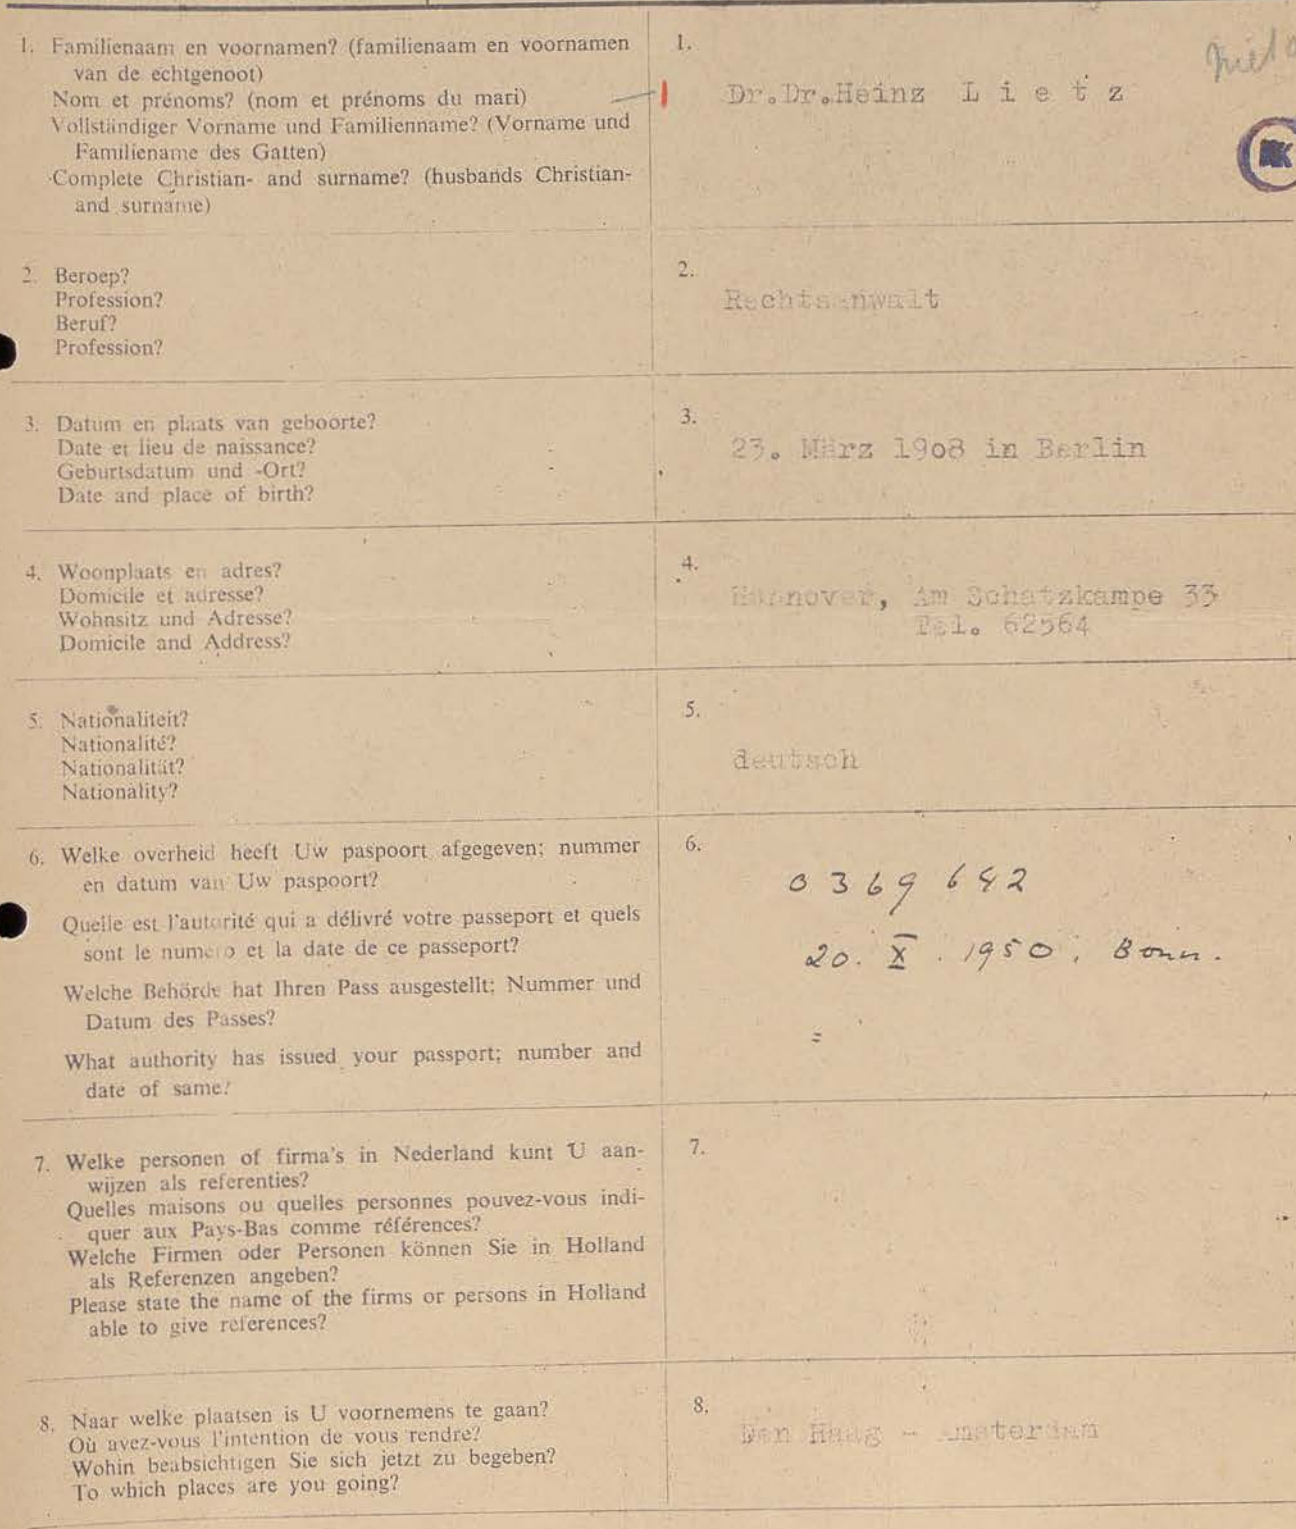 1. Familienaam en voornamen? (familienaam en voornamen
van de echtgenoot)
Nom et prénoms? (nom et prénoms du mari)
Vollständiger Vorname und Familienname? (Vorname und
Familiename des Gatten)
Complete Christian- and surname? (husbands Christian-
and surname)
1.
Dr.Dr.Heinz L i e t z
2. Beroep?
Profession?
Beruf?
Profession?
2.
Rechtsanwalt
3. Datum en plaats van geboorte?
Date et lieu de naissance?
Geburtsdatum und -Ort?
Date and place of birth?
3.
23. März 19o8 in Berlin
4. Woonplaats en adres?
Domicile et adresse?
Wohnsitz und Adresse?
Domicile and Address?
4.
Hannover, Am Schatzkampe 33
Tel. 62564
5. Nationaliteit?
Nationalité?
Nationalität?
Nationality?
5.
deutsch
6. Welke overheid heeft Uw paspoort afgegeven; nummer
en datum van Uw paspoort?
Quelle est l'autorité qui a délivré votre passeport et quels
sont le numero et la date de ce passeport?
Welche Behörde hat Ihren Pass ausgestellt; Nummer und
Datum des Passes?
What authority has issued your passport; number and
date of same?
6.
0369642
20. X. 1950, Bonn.
=
7. Welke personen of firma's in Nederland kunt U aan-
wijzen als referenties?
Quelles maisons ou quelles personnes pouvez-vous indi-
quer aux Pays-Bas comme références?
Welche Firmen oder Personen können Sie in Holland
als Referenzen angeben?
Please state the name of the firms or persons in Holland
able to give references?
7.
8. Naar welke plaatsen is U voornemens te gaan?
Où avez-vous l'intention de vous rendre?
Wohin beabsichtigen Sie sich jetzt zu begeben?
To which places are you going?
8.
Den Haag - Amsterdam